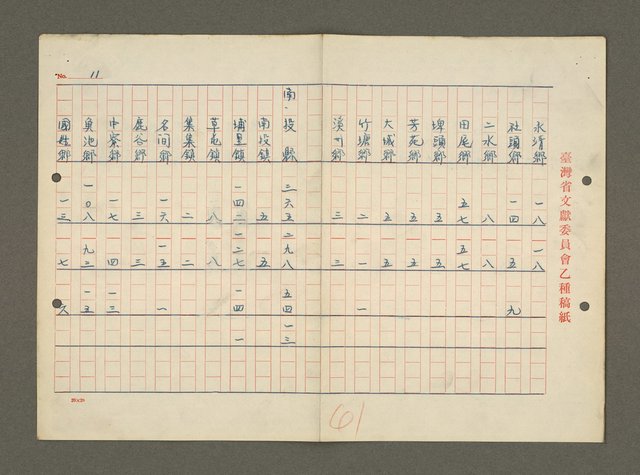 臺灣省文獻委員會乙種稿紙
永靖鄉 一八 一八
社頭鄉 一四 五 九
二水鄉 八 八
田尾鄉 五七 五七
埤頭鄉 五 五
芳苑鄉 五 五
大城鄉 五 五
竹塘鄉 二 一 一
溪州鄉 三 三
南投縣 三六五 二九八 五四 一三
南投鎮 五 五
埔里鎮 一四二 一二七 一四 一
草屯鎮 八 八
集集鎮 二 二
名間鄉 一六 一五 一
鹿谷鄉 三 三
中寮鄉 一七 四 一三
魚池鄉 一〇八 九三 一五
國姓鄉 一三 七 六
No. 11
20×25
61